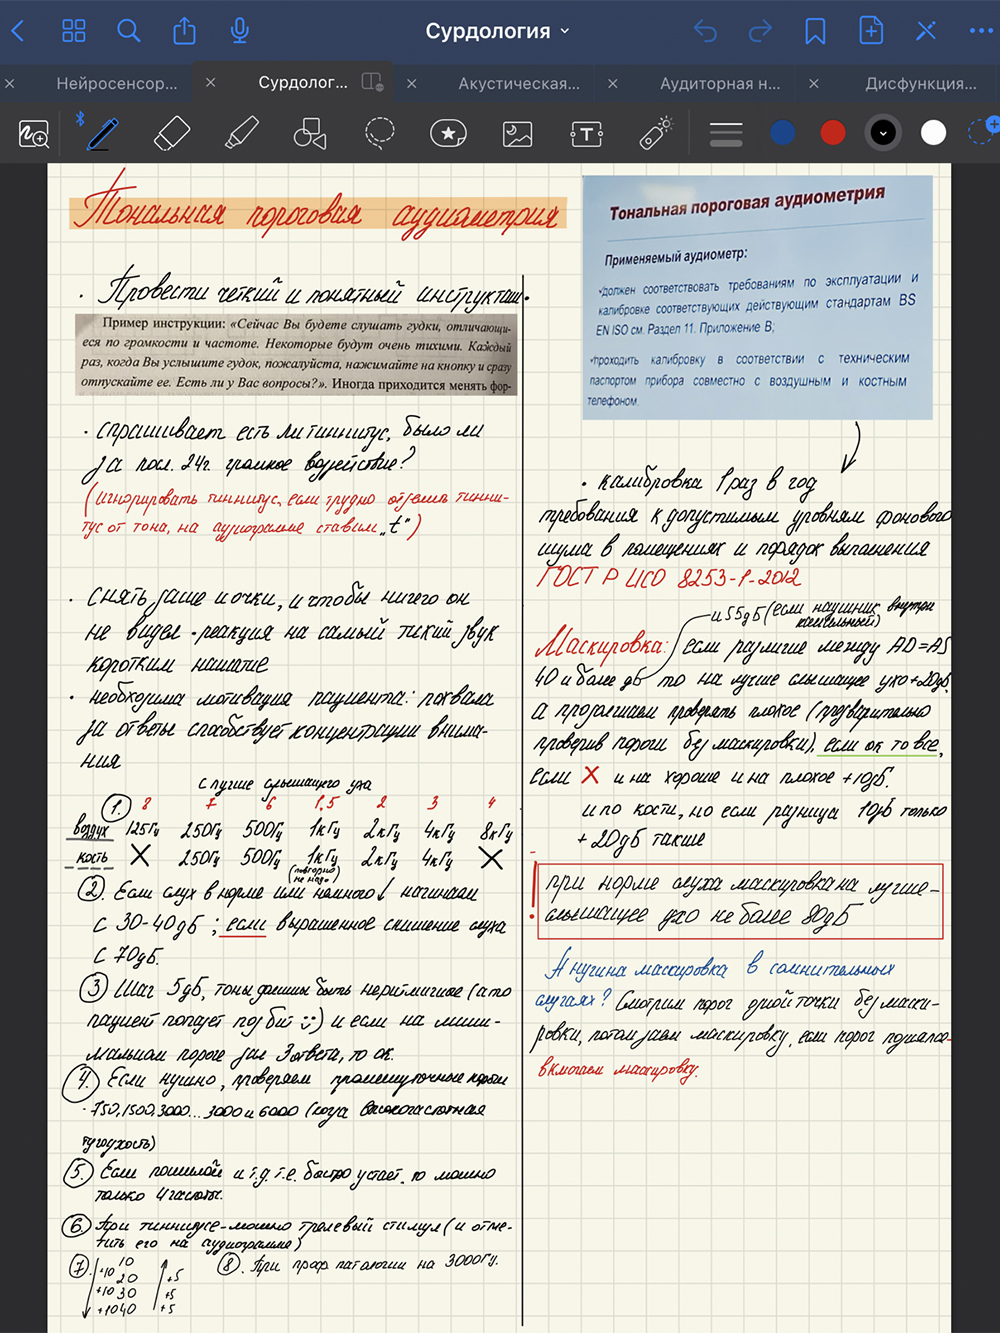 Сурдология
Нейросенсор...
Сурдолог...
Акустическая...
Аудиторная н...
Дисфункция...
Тональная пороговая аудиометрия
· Провести четкий и понятный инструктаж.
Пример инструкции: «Сейчас Вы будете слушать гудки, отличающи-
еся по громкости и частоте. Некоторые будут очень тихими. Каждый
раз, когда Вы услышите гудок, пожалуйста, нажимайте на кнопку и сразу
отпускайте ее. Есть ли у Вас вопросы?». Иногда приходится менять фор-
· спрашивает есть ли тиннитус, было ли
за посл. 24г. громкое воздействие?
(игнорировать тиннитус, если трудно отделить тинни-
тус от тона, на аудиограмме ставим „t")
· снять и очки, и чтобы ничего он
не видел · реакция на самый тихий звук
коротким нажатие
· необходима мотивация пациента: похвала
за ответы способствует концентрации внима-
ния
с лучше слышащего уха
1. 8 7 6 1,5 2 3 4
воздух 125Гц 250Гц 500Гц 1кГц 2кГц 4кГц 8кГц
кость X 250Гц 500Гц 1кГц 2кГц 4кГц X
(повторно
не надо)
2. Если слух в норме или немного ↓ начинаем
с 30-40дБ ; если выраженное снижение слуха
с 70дБ.
3 Шаг 5дБ, тоны должны быть неритмичные (а то
пациент попадет под бит :)) и если на мини-
мальном пороге дал 3 ответа, то ок.
4. Если нужно, проверяем промежуточные
· 750, 1500, 3000... 3000 и 6000 (когда высокочастотная
тугоухость)
5. Если пожилой и т.д. т.е. быстро устает, то можно
только 4 частоты.
6. При тиннитусе-можно трелевый стимул (и отме-
тить его на аудиограмме)
7. 10
+10 20 +5
+10 30 +5
+10 40 +5
8. При проф патологии на 3000Гц.
Тональная пороговая аудиометрия
Применяемый аудиометр:
•должен соответствовать требованиям по эксплуатации и
калибровке соответствующих действующим стандартам BS
EN ISO см. Раздел 11. Приложение В;
•проходить калибровку в соответствии с техническим
паспортом прибора совместно с воздушным и костным
телефоном.
· калибровка 1 раз в год
требования к допустимым уровням фонового
шума в помещениях и порядок выполнения
ГОСТ Р ИСО 8253-1-2012
и 55дБ (если наушник внутри
канальный)
Маскировка: если различие между AD=AS
40 и более дБ то на лучше слышащее ухо +20дБ,
а продолжаем проверять плохое (предварительно
проверив пороги без маскировки), если ок то все,
если X и на хорошее и на плохое +10дБ.
и по кости, но если разница 10дБ только
+ 20дБ также
! при норме слуха маскировка на лучше-
слышащее ухо не более 80дБ
А нужна маскировка в сомнительных
случаях? Смотрим порог одной точки без маски-
ровки, потом даем маскировку, если порог поднялся-
включаем маскировку.